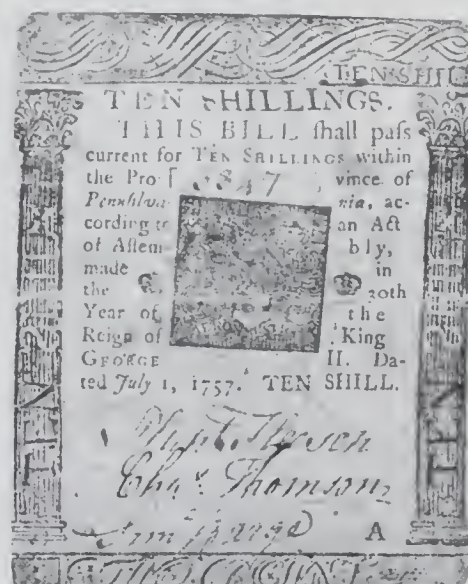 TEN SHIL
TEN SHILLINGS.
THIS BILL ſhall paſs
current for TEN SHILLINGS within
the Pro [ 3847 ] vince of
Pennſylva nia, ac-
cording to an Act
of Aſſem bly,
made in
the 30th
Year of the
Reign of King
GEORGE II. Da-
ted July 1, 1757. TEN SHILL.
Chaˢ. Thomson
A
TEN
TEN